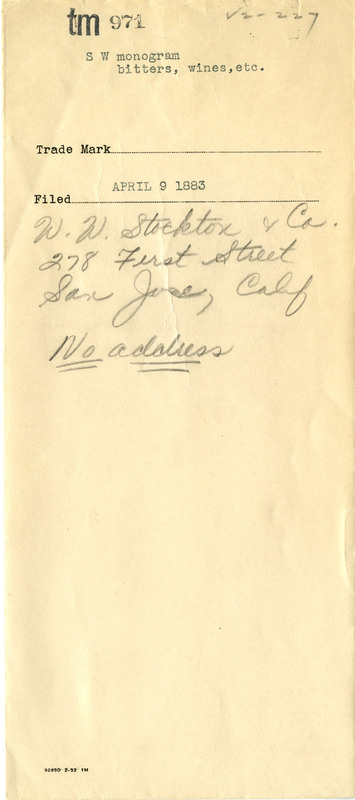 tm 971
V2-227
S W monogram
bitters, wines, etc.
Trade Mark
Filed APRIL 9 1883
W. W. Stockton & Co.
278 First Street
San Jose, Calif
No address
62650 2-32 1M